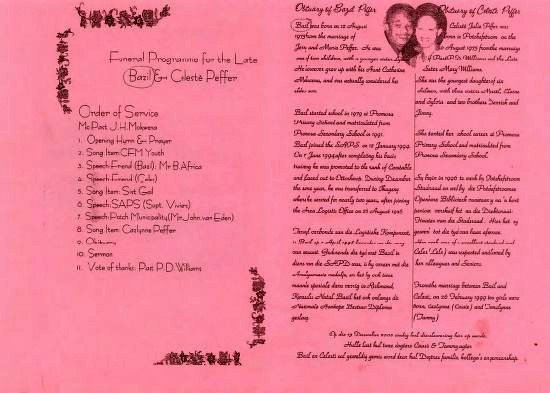 Funeral Programme for the Late
Bazil & Celesté Peffer
Order of Service
Mc Past. J.H. Mokwena
1. Opening Humn & Prayer
2. Song Item: CFM Youth
3. Speech: Friend (Bazil): Mr B. Africa
4. Speech: Friend (Cele)
5. Song Item: Sist Gail
6. Speech: SAPS (Supt. Vivier)
7. Speech: Potch Municipality (Mr. John van Eden)
8. Song Item: Cazlynne Peffer
9. Obituary
10. Sermon
11. Vote of thanks: Past P.D. Williams
Obituary of Bazil Peffer
Bazil was born on 12 August
1973 from the marriage of
Jerry and Maria Peffer. He was
one of two children, with a younger sister
He however grew up with his Aunt Catherine
and was actually considered his
Bazil started school in 1979 at Promosa
Primary School and matriculated from
Promosa Secondary School in 1991.
Bazil joined the SAPS on 12 January 1994.
On 7 June 1994 after completing his basic
training he was promoted to the rank of Constable
and posted out to Ottosdorp. During December
the same year, he was transferred to
where he served for nearly two years, after joining
the Area Logistic Office on 25 August 1996.
Terwyl verbonde aan die Logistieke Komponent,
is Bazil op 1 April
Gedurende die tyd wat Bazil in
diens van die SAPD was, is hy
medalje, en het hy ook
spesiale diens verrig in Richmond,
Kwazulu Natal. Bazil het ook onlangs die
Nasionale Diploma
geslaag.
Obituary of Celesté Peffer
Celesté Julia Peffer was
born in Potchefstroom on the
August 1975 from the marriage
of Past P.D. Williams and the late
Sister Mary Williams.
She was the youngest daughter of six
children, with three sisters Muriel, Cleone
and Sylvia and two brothers Derrick and
Jimmy.
She started her school career at Promosa
Primary School and matriculated from
Promosa Secondary School.
Sy begin in 1996 te werk by Potchefstroom
Stadsraad en wel by die Potchefstroomse
Openbare Biblioteek
periode verskuif het na die Direktoraat:
van die Stadsraad. Hier het sy
gewerk tot die tyd van haar afsterwe.
Cele (Lele) was respected and loved by
her colleagues and Seniors.
From the marriage between Bazil and
Celest, on 26 February 1999 two girls were
born, Cazlynne (Cassie) and Tamilynne
(Tammy)
Op die 19 Desember 2000
Hulle laat hul twee dogters Cassie & Tammy agter
Bazil en Celesté sal geweldig gemis word deur hul Dogters familie, kollega's en gemeenskap.